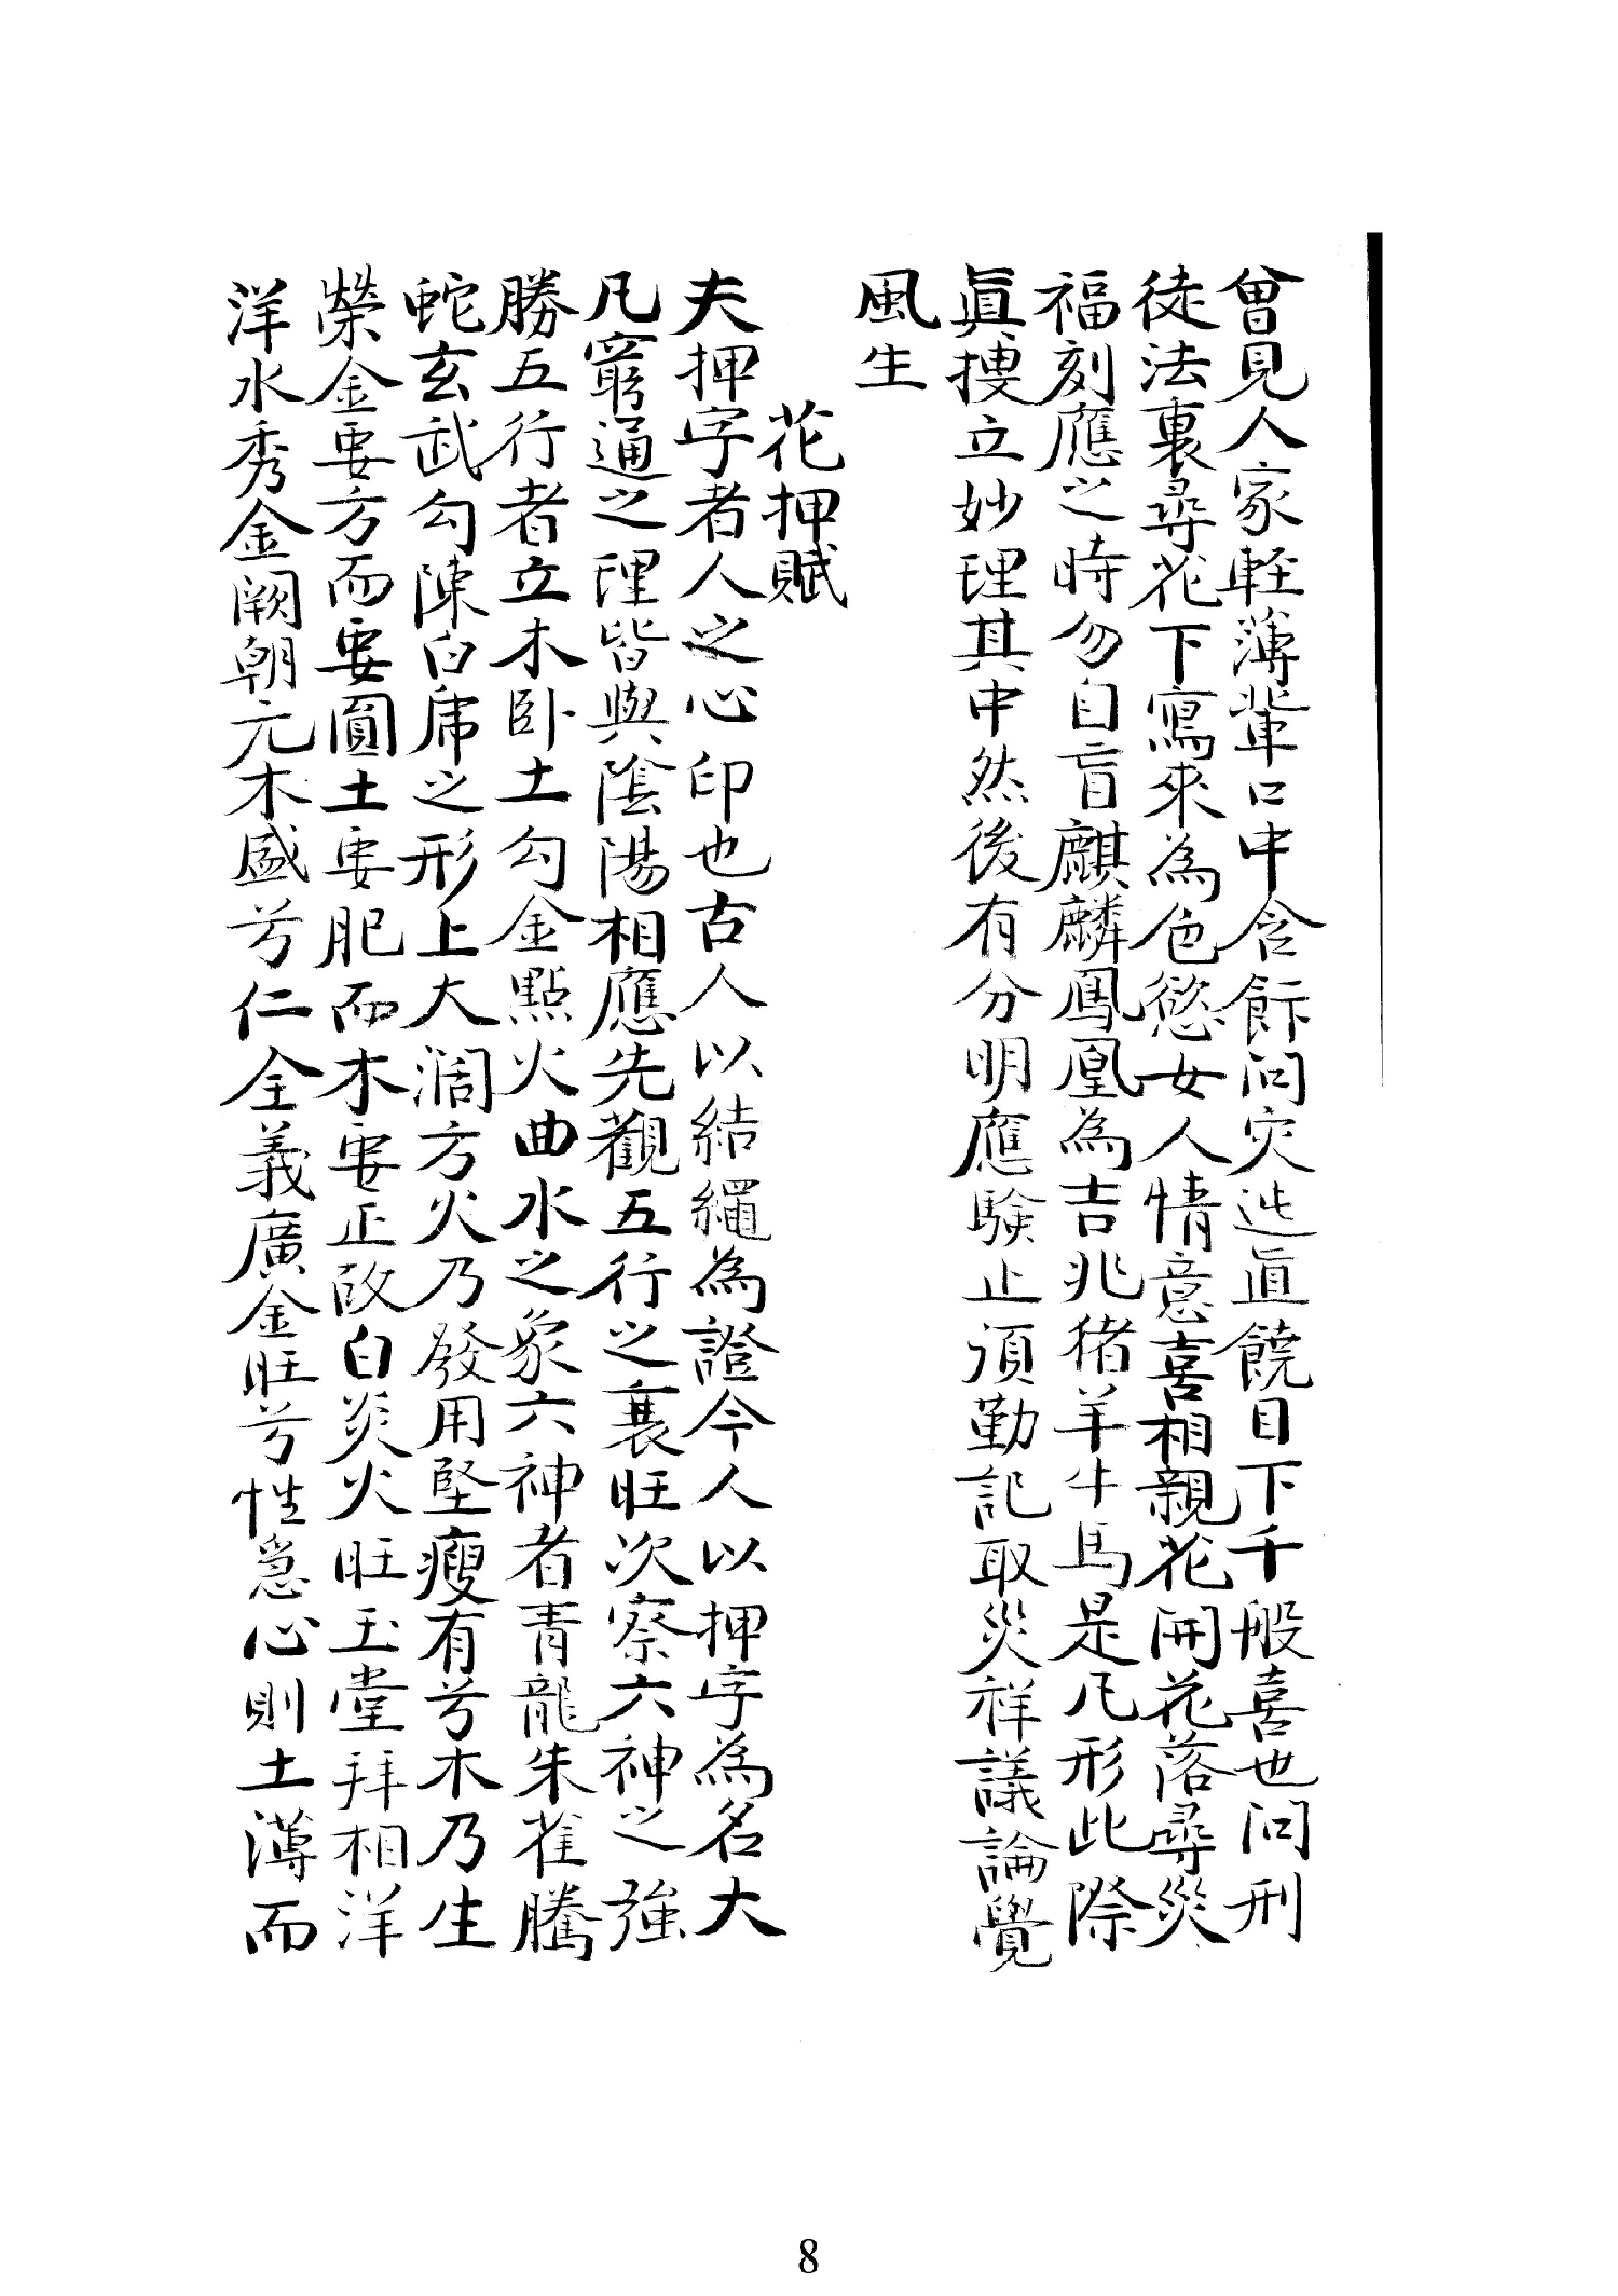 曾見人家輕薄輩口中含餙問灾迍眞饒目下千般喜也問刑
徒法裏尋花下寫來為色慾女人情意喜相親花開花落尋災
福刻應之時勿自盲麒麟鳳凰為吉兆猪羊牛馬是凡形此際
眞摟立妙理其中然後有分明應驗止須勤記取災祥議論覺
風生
花押賦
夫押字者人之心印也古人以結繩為證今人以押字為名大
凡窮通之理皆與陰陽相應先觀五行之衰旺次察六神之強
勝五行者立木卧土勾金點火曲水之象六神者青龍朱雀騰
蛇玄武勾陳白虎之形上大濶方火乃發用堅瘦有兮木乃生
榮金要方而要圓土要肥而木要正故曰炎火旺玉堂拜相洋
洋水秀金闕朝元木盛兮仁全義廣金旺兮性急心則土薄而
8